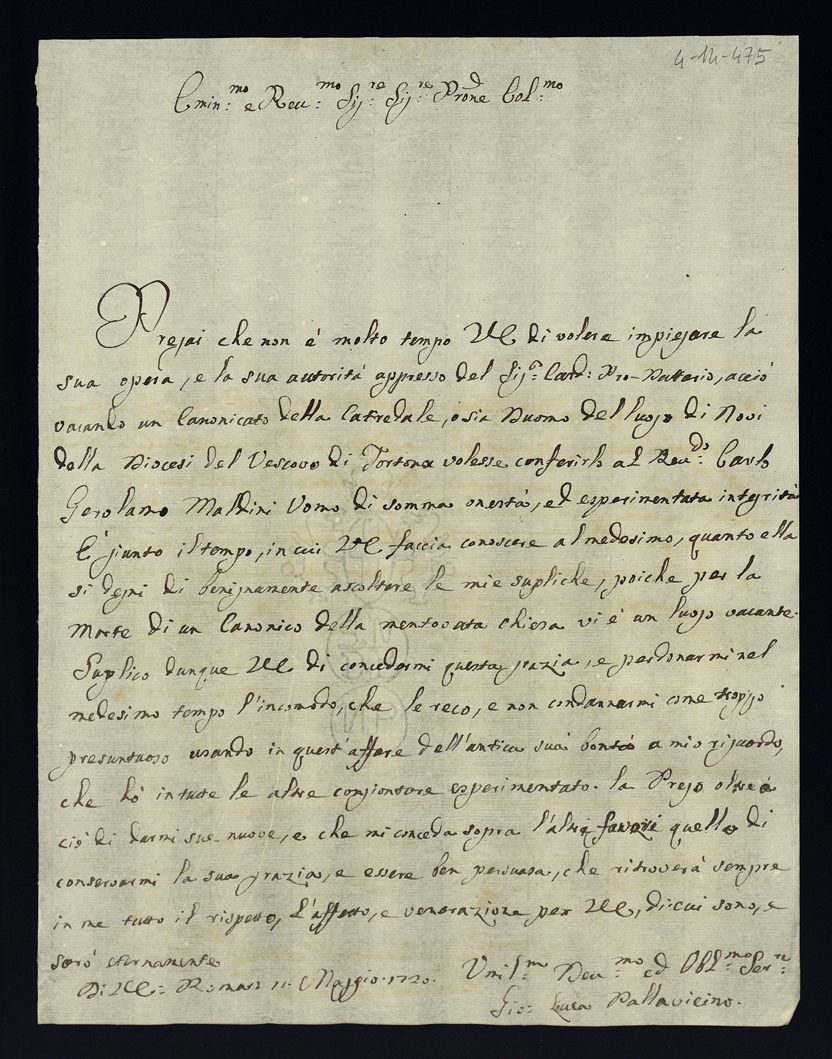 4-14-475
Emin:mo e Reu:mo Sig:re Sig:re Prone Col:mo
Pregai che non è molto tempo VE di volere impiegare la
sua opera, e la sua autorità appresso del Sig:e Card: Pro-Dattario, acciò
vacando un Canonicato della Catredale, ò sia Duomo del luogo di Novi
della Diocesi del Vescovo di Tortona volesse conferirlo al Reu:do Carlo
Gerolamo Maldini Uomo di somma onestà, ed esperimentata integrità
È giunto il tempo, in cui VE faccia conoscere al medesimo, quanto ella
si degni di benignamente ascoltare le mie supliche, poiche per la
Morte di un Canonico della mentovata chiesa vi è un luogo vacante.
Suplico dunque VE di concedermi questa grazia, e perdonarmi nel
medesimo tempo l'incomodo, che le reco, e non condannarmi come troppo
presuntuoso usando in quest'affare dell'antica sua bontà a mio riguardo,
che hò in tutte le altre congionture esperimentato. la Prego oltre a
ciò di darmi sue nuove, e che mi conceda sopra l'altri favori quello di
conservarmi la sua grazia, e essere ben persuasa, che ritroverà sempre
in me tutto il rispetto, L'affetto, e venerazione per VE, di cui sono, e
sarò eternamente
Di VE: Roma 11. Maggio. 1720. Umil:mo Deu:mo ed Obl:mo Ser:re
Gio: Luca Pallavicino.